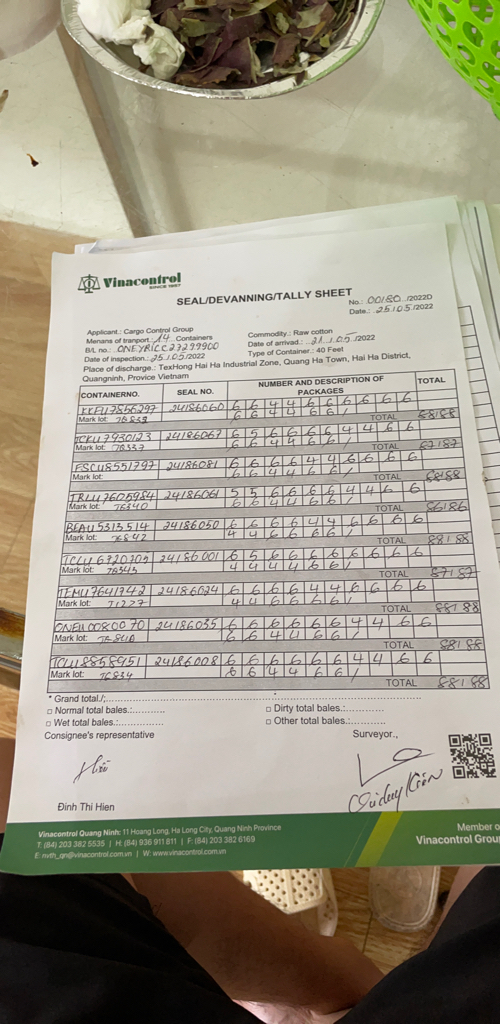 Vinacontrol
SINCE 1957
SEAL/DEVANNING/TALLY SHEET
No.: 00180 /2022D
Date.: 25/05/2022
Applicant.: Cargo Control Group
Commodity.: Raw cotton
Menans of tranport.: 14 Containers
Date of arrivad.: 21/05/2022
B/L no.: ONEYRICC27299900
Type of Container.: 40 Feet
Date of inspection.: 25/05/2022
Place of discharge.: TexHong Hai Ha Industrial Zone, Quang Ha Town, Hai Ha District,
Quangninh, Provice Vietnam
CONTAINERNO. SEAL NO. NUMBER AND DESCRIPTION OF PACKAGES TOTAL
24186060 6 6 4 4 6 6 6 6 6 6
Mark lot: 6 6 4 4 6 6 /
TOTAL 88/88
TCKU7930123 24186067 6 5 6 6 6 6 4 4 6 6
Mark lot: 76337 6 6 4 4 6 6 /
TOTAL 87/87
FSCU8551797 24186081 6 6 6 6 4 4 6 6 6 6
Mark lot:
TOTAL 88/88
TRLU7605984 24186061 5 5 6 6 6 6 4 4 6 6
Mark lot: 76840 6 6 4 4 6 6 /
TOTAL 86/86
BEAU5313514 24186050 6 6 6 6 4 4 6 6 6 6
Mark lot: 76842 4 4 6 6 6 6 /
TOTAL 88/88
TCLU6720305 24186001 6 5 6 6 6 6 6 6 6 6
Mark lot: 76343 4 4 4 4 6 6 /
TOTAL 87/87
TEMU7641942 24186024 6 6 6 6 4 4 6 6 6 6
Mark lot: 71277 4 4 6 6 6 6 /
TOTAL 88/88
ONEU0080070 24186035 6 6 6 6 6 6 4 4 6 6
Mark lot: 6 6 4 4 6 6 /
TOTAL 88/88
TCLU8858951 24186008 6 6 6 6 6 6 4 4 6 6
Mark lot: 76834 6 6 4 4 6 6 /
TOTAL 88/88
* Grand total./:
□ Normal total bales.:
□ Dirty total bales.:
□ Wet total bales.:
□ Other total bales.:
Consignee's representative
Surveyor.,
Hiền
Đinh Thi Hien
Vinacontrol Quang Ninh: 11 Hoang Long, Ha Long City, Quang Ninh Province
T: (84) 203 382 5535 | H: (84) 936 911 811 | F: (84) 203 382 6169
E: nvth_qn@vinacontrol.com.vn | W: www.vinacontrol.com.vn
Member o
Vinacontrol Grou